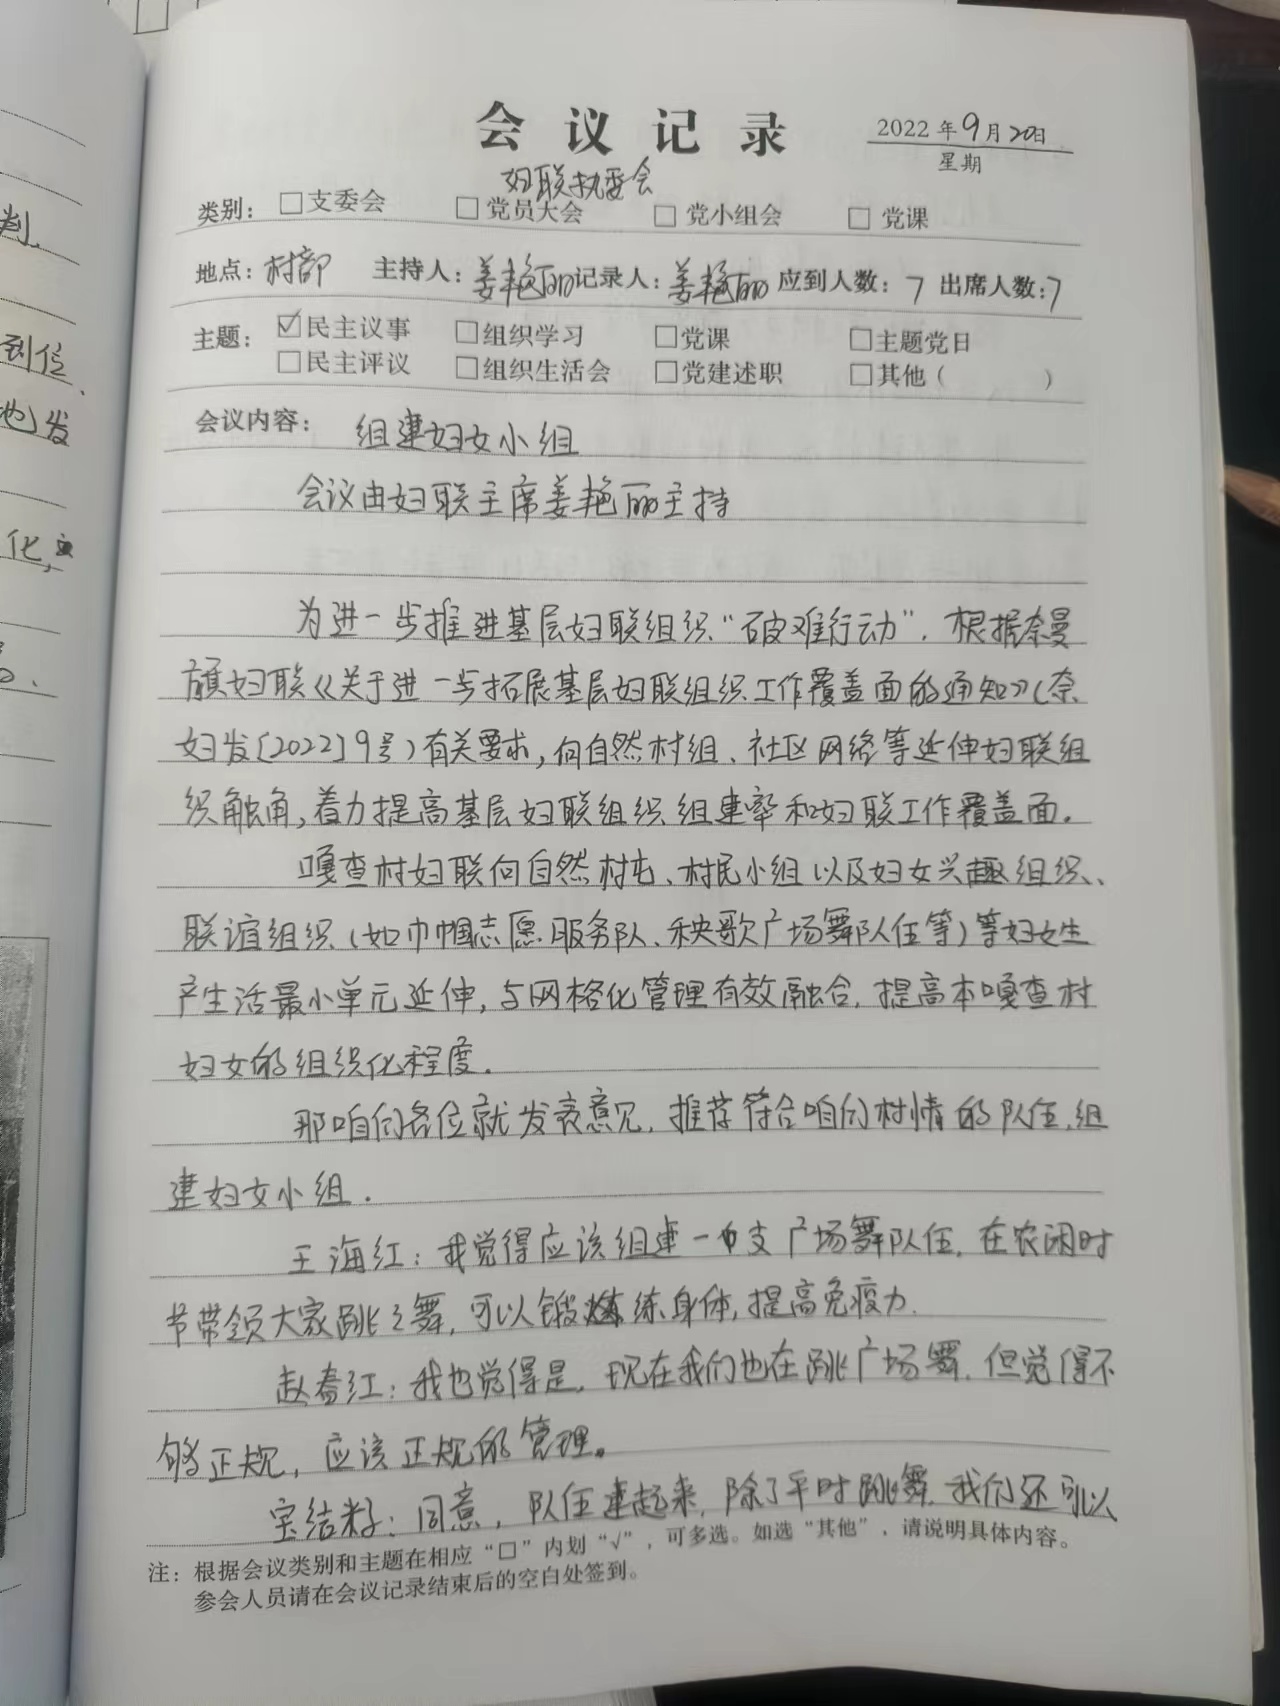 判.
到位、
地发
化,
会议记录
2022年9月20日
星期
妇联执委会
类别: □支委会 □党员大会 □党小组会 □党课
地点: 村部 主持人: 姜艳丽 记录人: 姜艳丽 应到人数: 7 出席人数: 7
主题: ☑民主议事 □组织学习 □党课 □主题党日
□民主评议 □组织生活会 □党建述职 □其他( )
会议内容: 组建妇女小组
会议由妇联主席姜艳丽主持
为进一步推进基层妇联组织“破难行动”. 根据奈曼
旗妇联《关于进一步拓展基层妇联组织工作覆盖面的通知》(奈
妇发[2022]9号)有关要求, 向自然村组、社区网络等延伸妇联组
织触角, 着力提高基层妇联组织组建率和妇联工作覆盖面.
嘎查村妇联向自然村屯、村民小组以及妇女兴趣组织、
联谊组织(如巾帼志愿服务队、秧歌广场舞队伍等)等妇女生
产生活最小单元延伸, 与网格化管理有效融合, 提高本嘎查村
妇女的组织化程度.
那咱们各位就发表意见, 推荐符合咱们村情的队伍, 组
建妇女小组.
王海红: 我觉得应该组建一支广场舞队伍, 在农闲时
节带领大家跳跳舞, 可以锻炼身体, 提高免疫力.
赵春红: 我也觉得是, 现在我们也在跳广场舞, 但觉得不
够正规, 应该正规的管理。
宝结籽: 同意, 队伍建起来, 除了平时跳舞, 我们还可以
注: 根据会议类别和主题在相应“□”内划“√”, 可多选。如选“其他”, 请说明具体内容。
参会人员请在会议记录结束后的空白处签到。